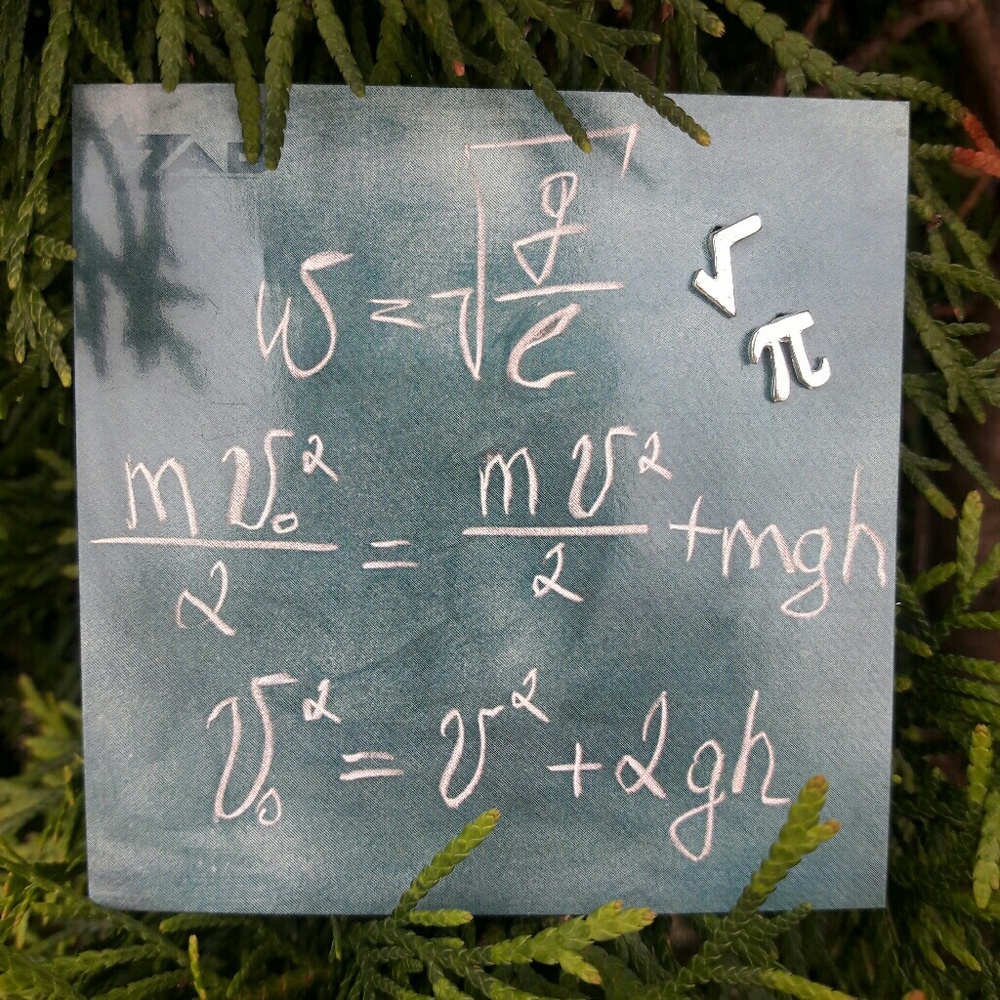 ω = √(g/ℓ)
√
π
mv₀²/2 = mv²/2 + mgh
v₀² = v² + 2gh